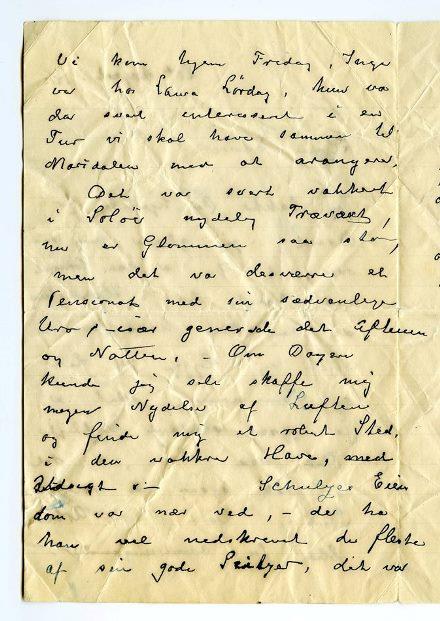 Vi kom hjem Fredag, Inga
var hos Laura Lørdag, hun var
da svært interessert i en
Tur vi skal have sammen til
Maridalen med at arangere.
Det var svært vakkert
i Solør nydelig Trævæxt,
nu er Glommen saa stor,
men det var desværre et
Pensionat med sin sædvanlige
Uro, – især generede det Aftenen
og Natten. – Om Dagen
kunde jeg selv skaffe mig
megen Nydelse af Luften
og finde mig et roligt Sted,
i den vakkre Have, med
Udsigt – Schulzes Eien
dom var nær ved, – der har
han vel nedskrevet de fleste
af sin gode, det var